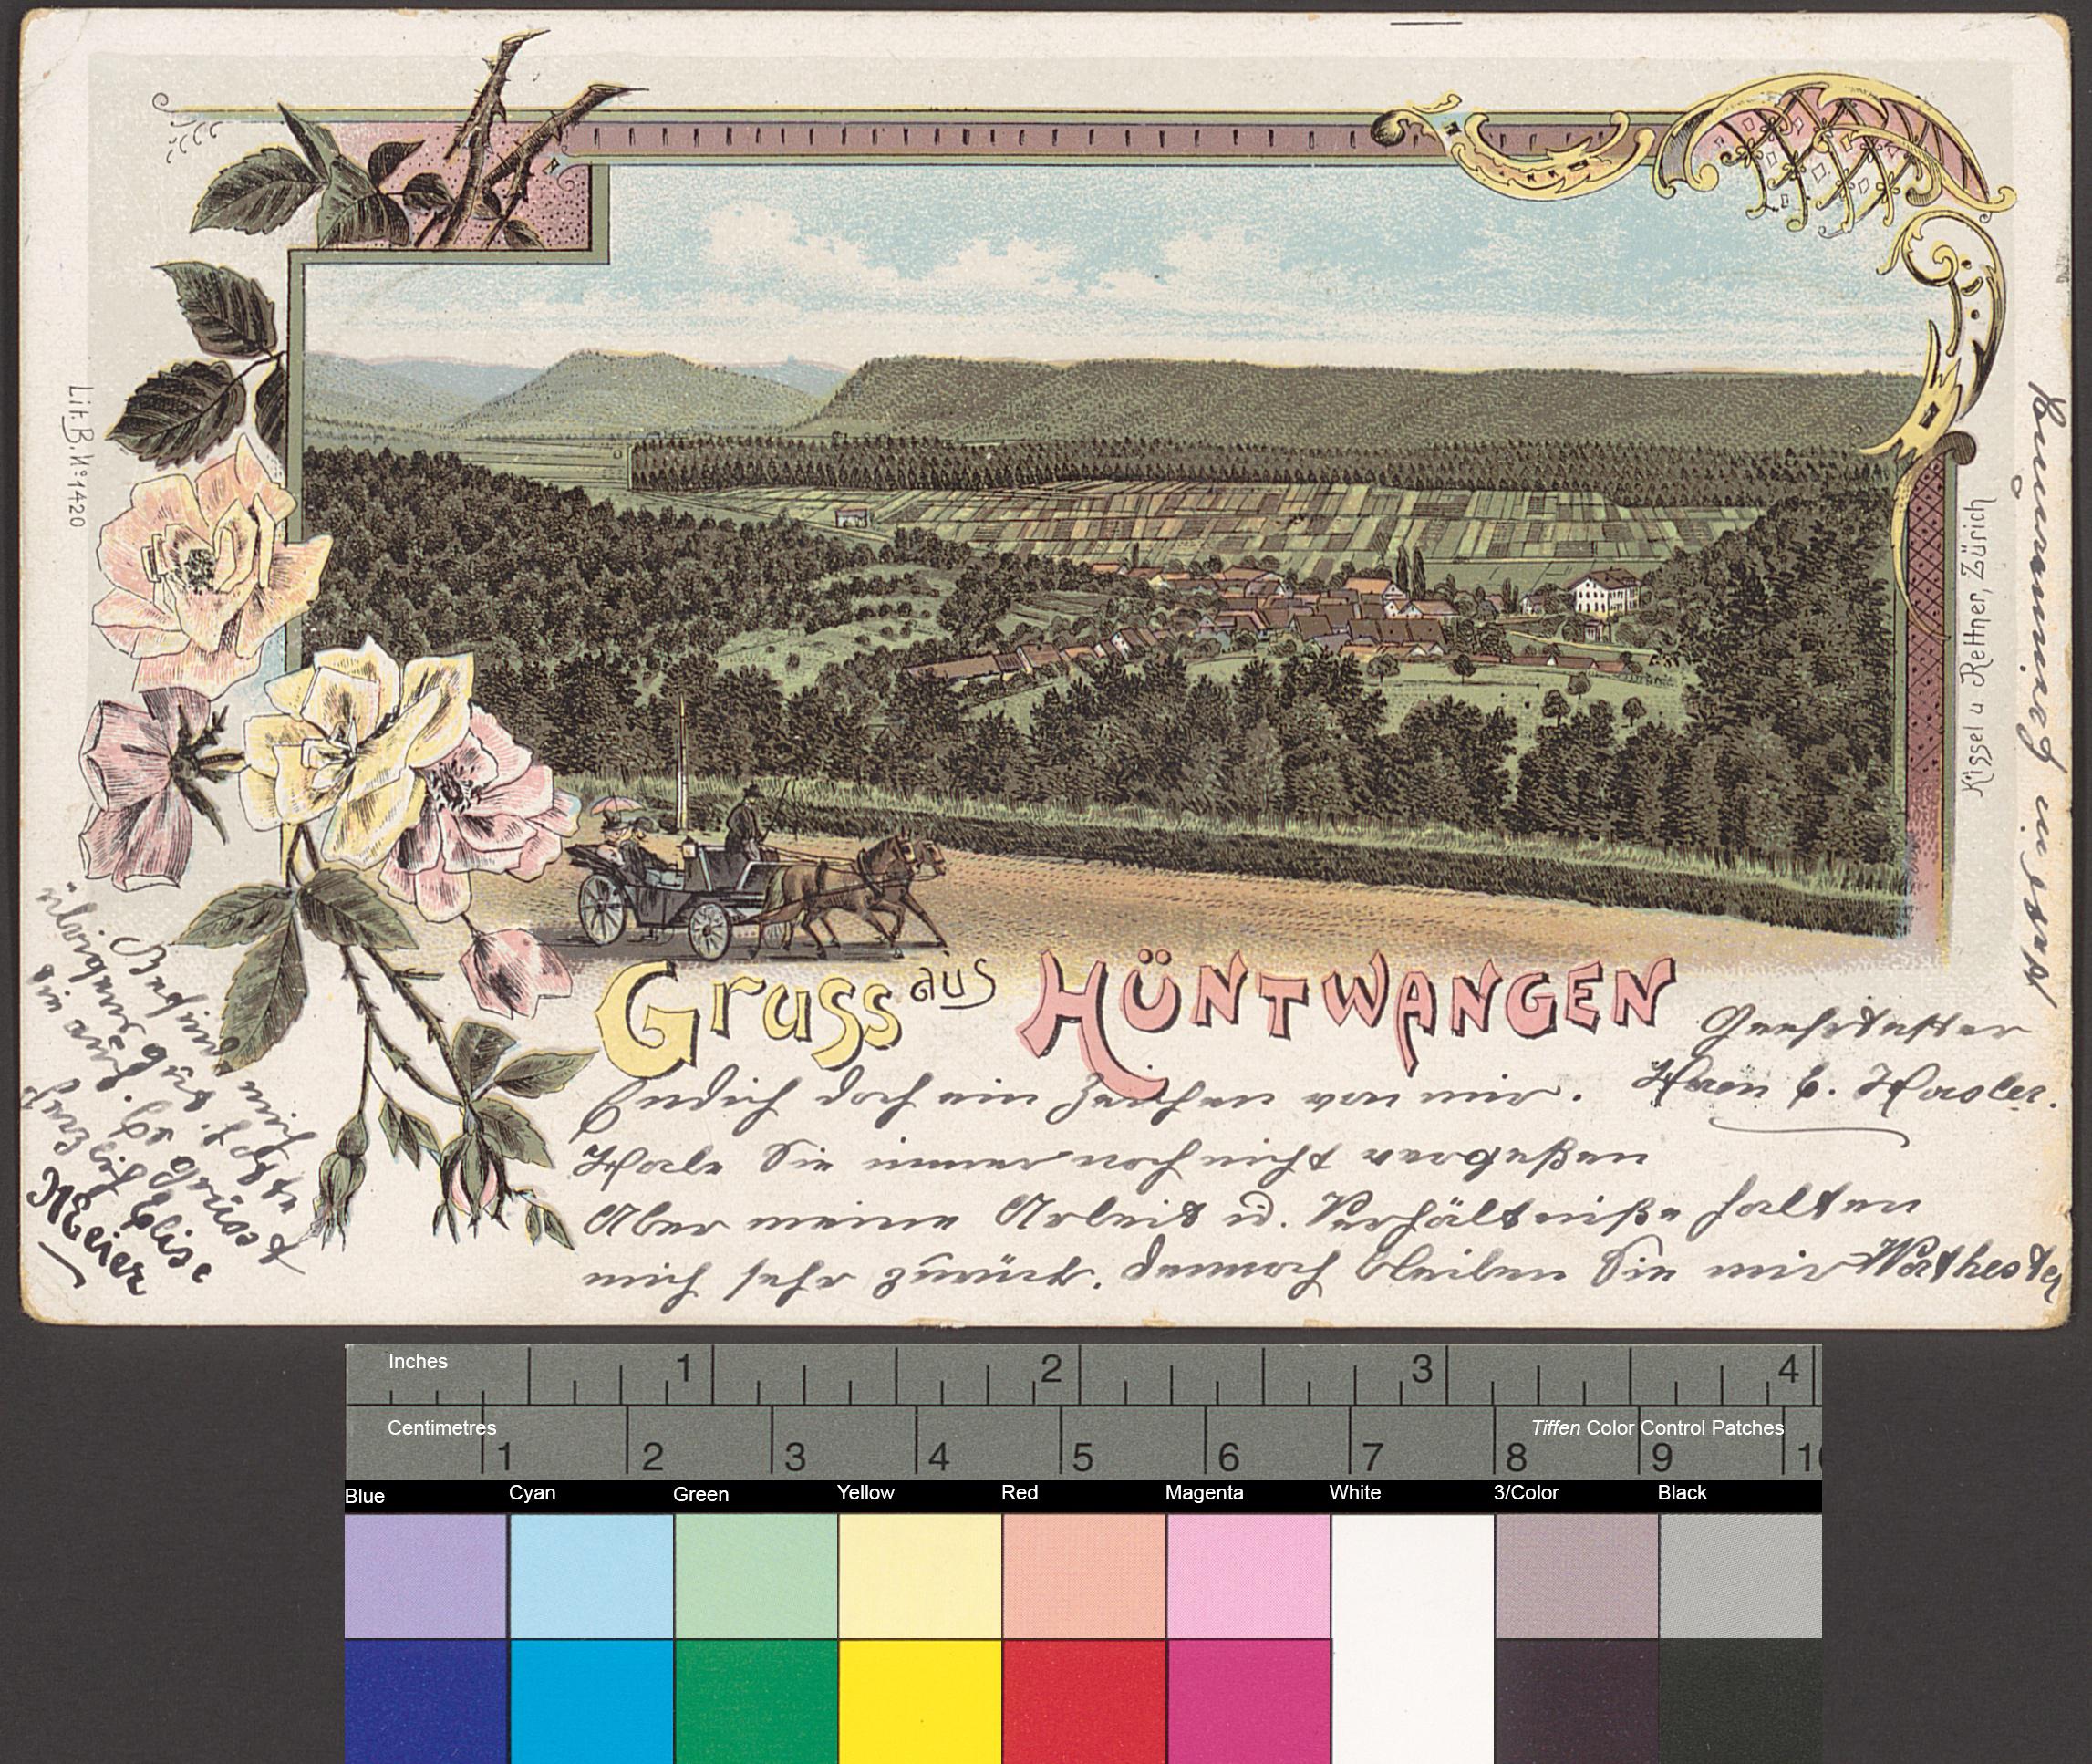 Lit. B. No 1420
Kissel u. Rettner, Zürich
Gruss aus HÜNTWANGEN
Geehrtester
Herrn E. Hasler.
Endich doch ein Zeichen von mir.
Habe Sie immer noch nicht vergeßen
Aber meine Arbeit u. Verhältniße halten
mich sehr zurück. Dennoch bleiben Sie mir Werthester
in
Befinde mich
übrigens
Es grüsst
Sie herzlich
Elise
Meier
Inches
1 2 3 4
Centimetres
Tiffen Color Control Patches
1 2 3 4 5 6 7 8 9 10
Blue Cyan Green Yellow Red Magenta White 3/Color Black